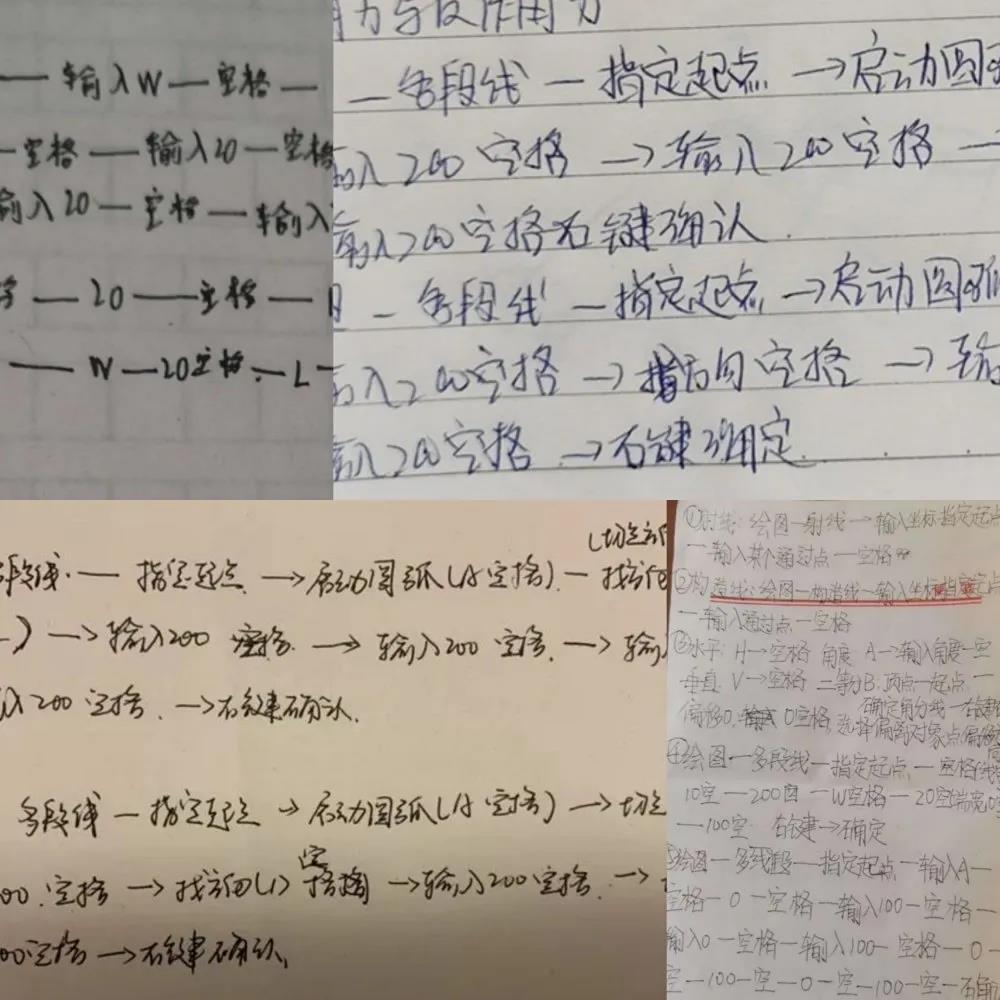 — 输入W — 空格 —
— 空格 — 输入20 — 空格
输入20 — 空格 — 输入
— 20 — 空格 —
— W — 20空格 — L —
力与反作用力
— 多段线 — 指定起点 → 启动圆弧
输入200 空格 → 输入200 空格 —
输入200空格右键确认.
— 多段线 — 指定起点 → 启动圆弧
输入200空格 → 找方向空格 → 输
输入200空格 → 右键确定.
(切点方
多段线. — 指定起点 → 启动圆弧(A空格). — 找方向
) → 输入200 空格. → 输入200 空格. → 输入
入200 空格. → 右键确认.
多段线 — 指定起点 → 启动圆弧(A空格) → 切点
00.空格 → 找方向(L) 空格 → 输入200空格. →
00空格 → 右键确认,
①射线: 绘图—射线 → 输入坐标指定起点
— 输入某个通过点 — 空格
②构造线: 绘图—构造线—输入坐标指定点
— 输入通过点 — 空格
③水平: H → 空格 角度: A → 输入角度—空
垂直: V → 空格 二等分B: 顶点—起点 —
确定角分线—右键
偏移O. O空格, 选择偏离对象点偏移
④绘图—多段线—指定起点 — 空格
10空 — 200 — W空格 — 20空端宽0
— 100空 右键 → 确定
绘图 — 多线段 — 指定起点 — 输入A —
空格 — 0 — 空格 — 输入100 — 空格 —
输入0 — 空格 — 输入100 — 空格 — 0 —
空 — 100 — 空 — 0 — 空 — 100 — 空 — 右